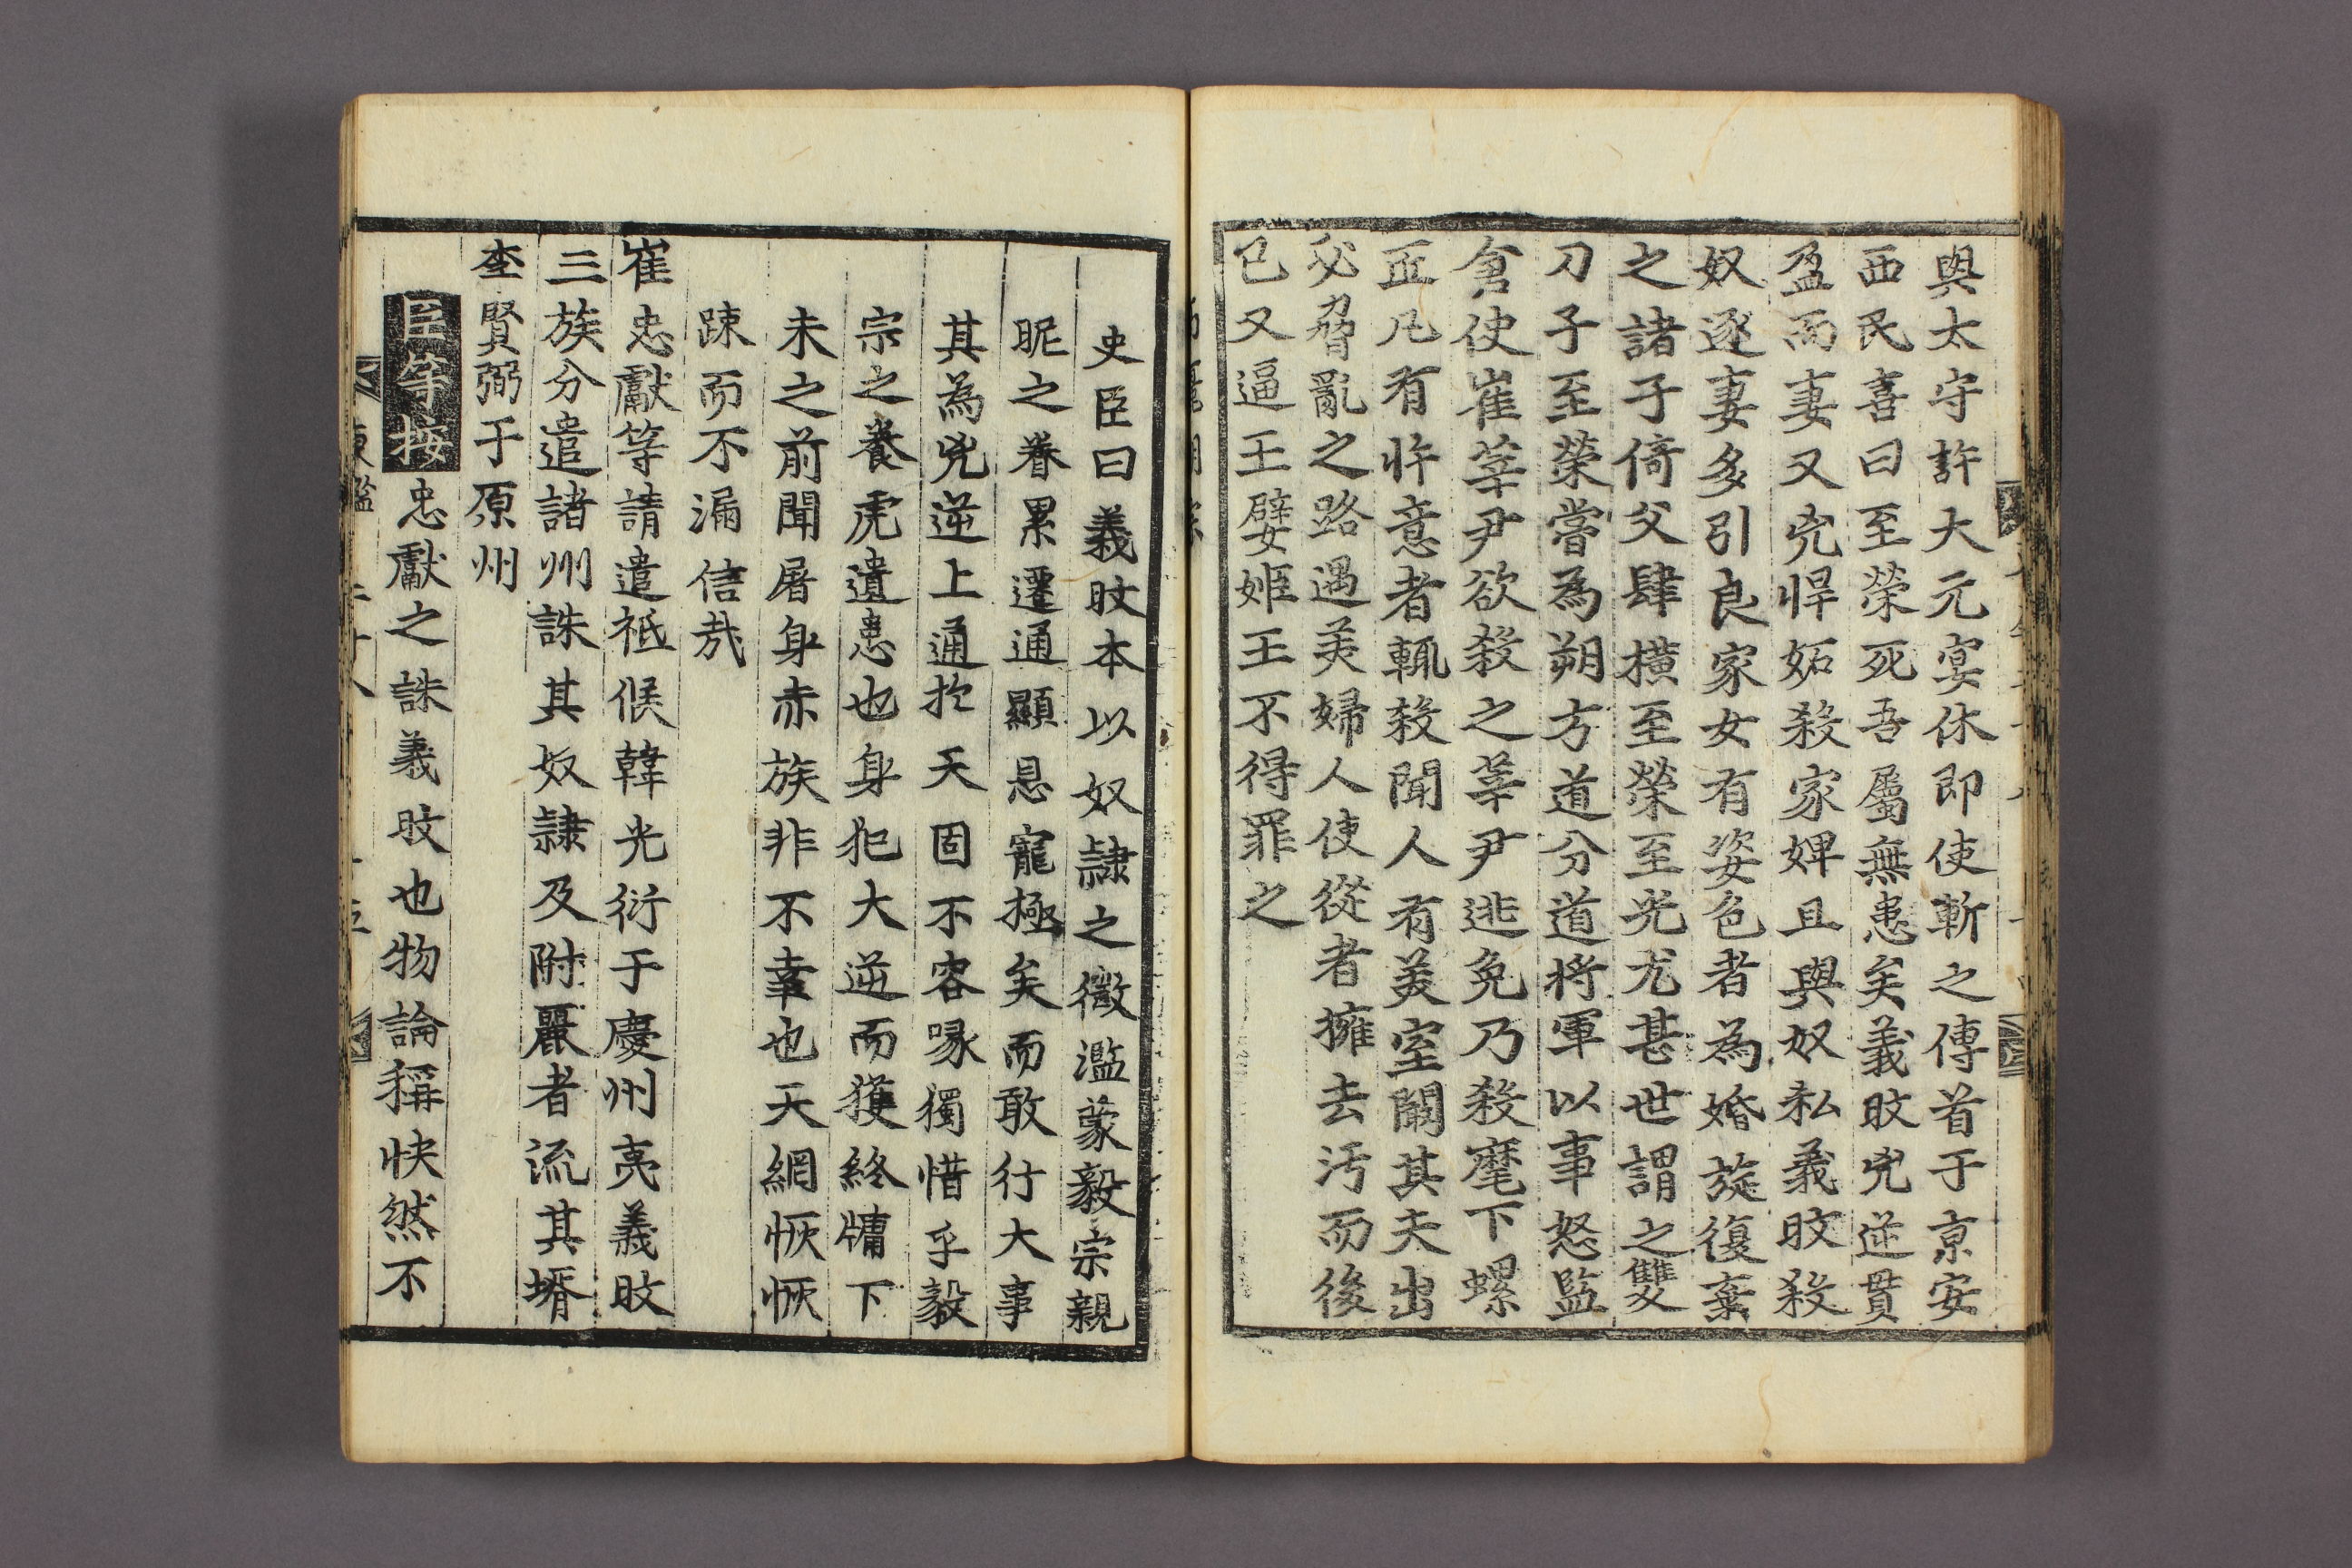 與太守許大元宴休即使斬之傳首于京安
西民喜曰至榮死吾屬無患矣義旼兇逆貫
盈而妻又兇悍妬殺家婢且與奴私義旼殺
奴逐妻多引良家女有姿色者為婚旋復棄
之諸子倚父肆橫至榮至光尤甚世謂之雙
刀子至榮嘗為朔方道分道將軍以事怒監
倉使崔莘尹欲殺之莘尹逃免乃殺麾下螺
匠凡有忤意者輒殺聞人有美室闞其夫出
必脅亂之路遇美婦人使從者擁去污而後
已又逼王嬖姬王不得罪之
史臣曰義旼本以奴隷之微濫蒙毅宗親
昵之眷累遷通顯恩寵極矣而敢行大事
其為兇逆上通於天固不容喙獨惜乎毅
宗之養虎遺患也身犯大逆而獲終牖下
未之前聞屠身赤族非不幸也天網恢恢
踈而不漏信哉
崔忠獻等請遣祗候韓光衍于慶州夷義旼
三族分遣諸州誅其奴隷及附麗者流其壻
李賢弼于原州
臣等按忠獻之誅義旼也物論稱快然不